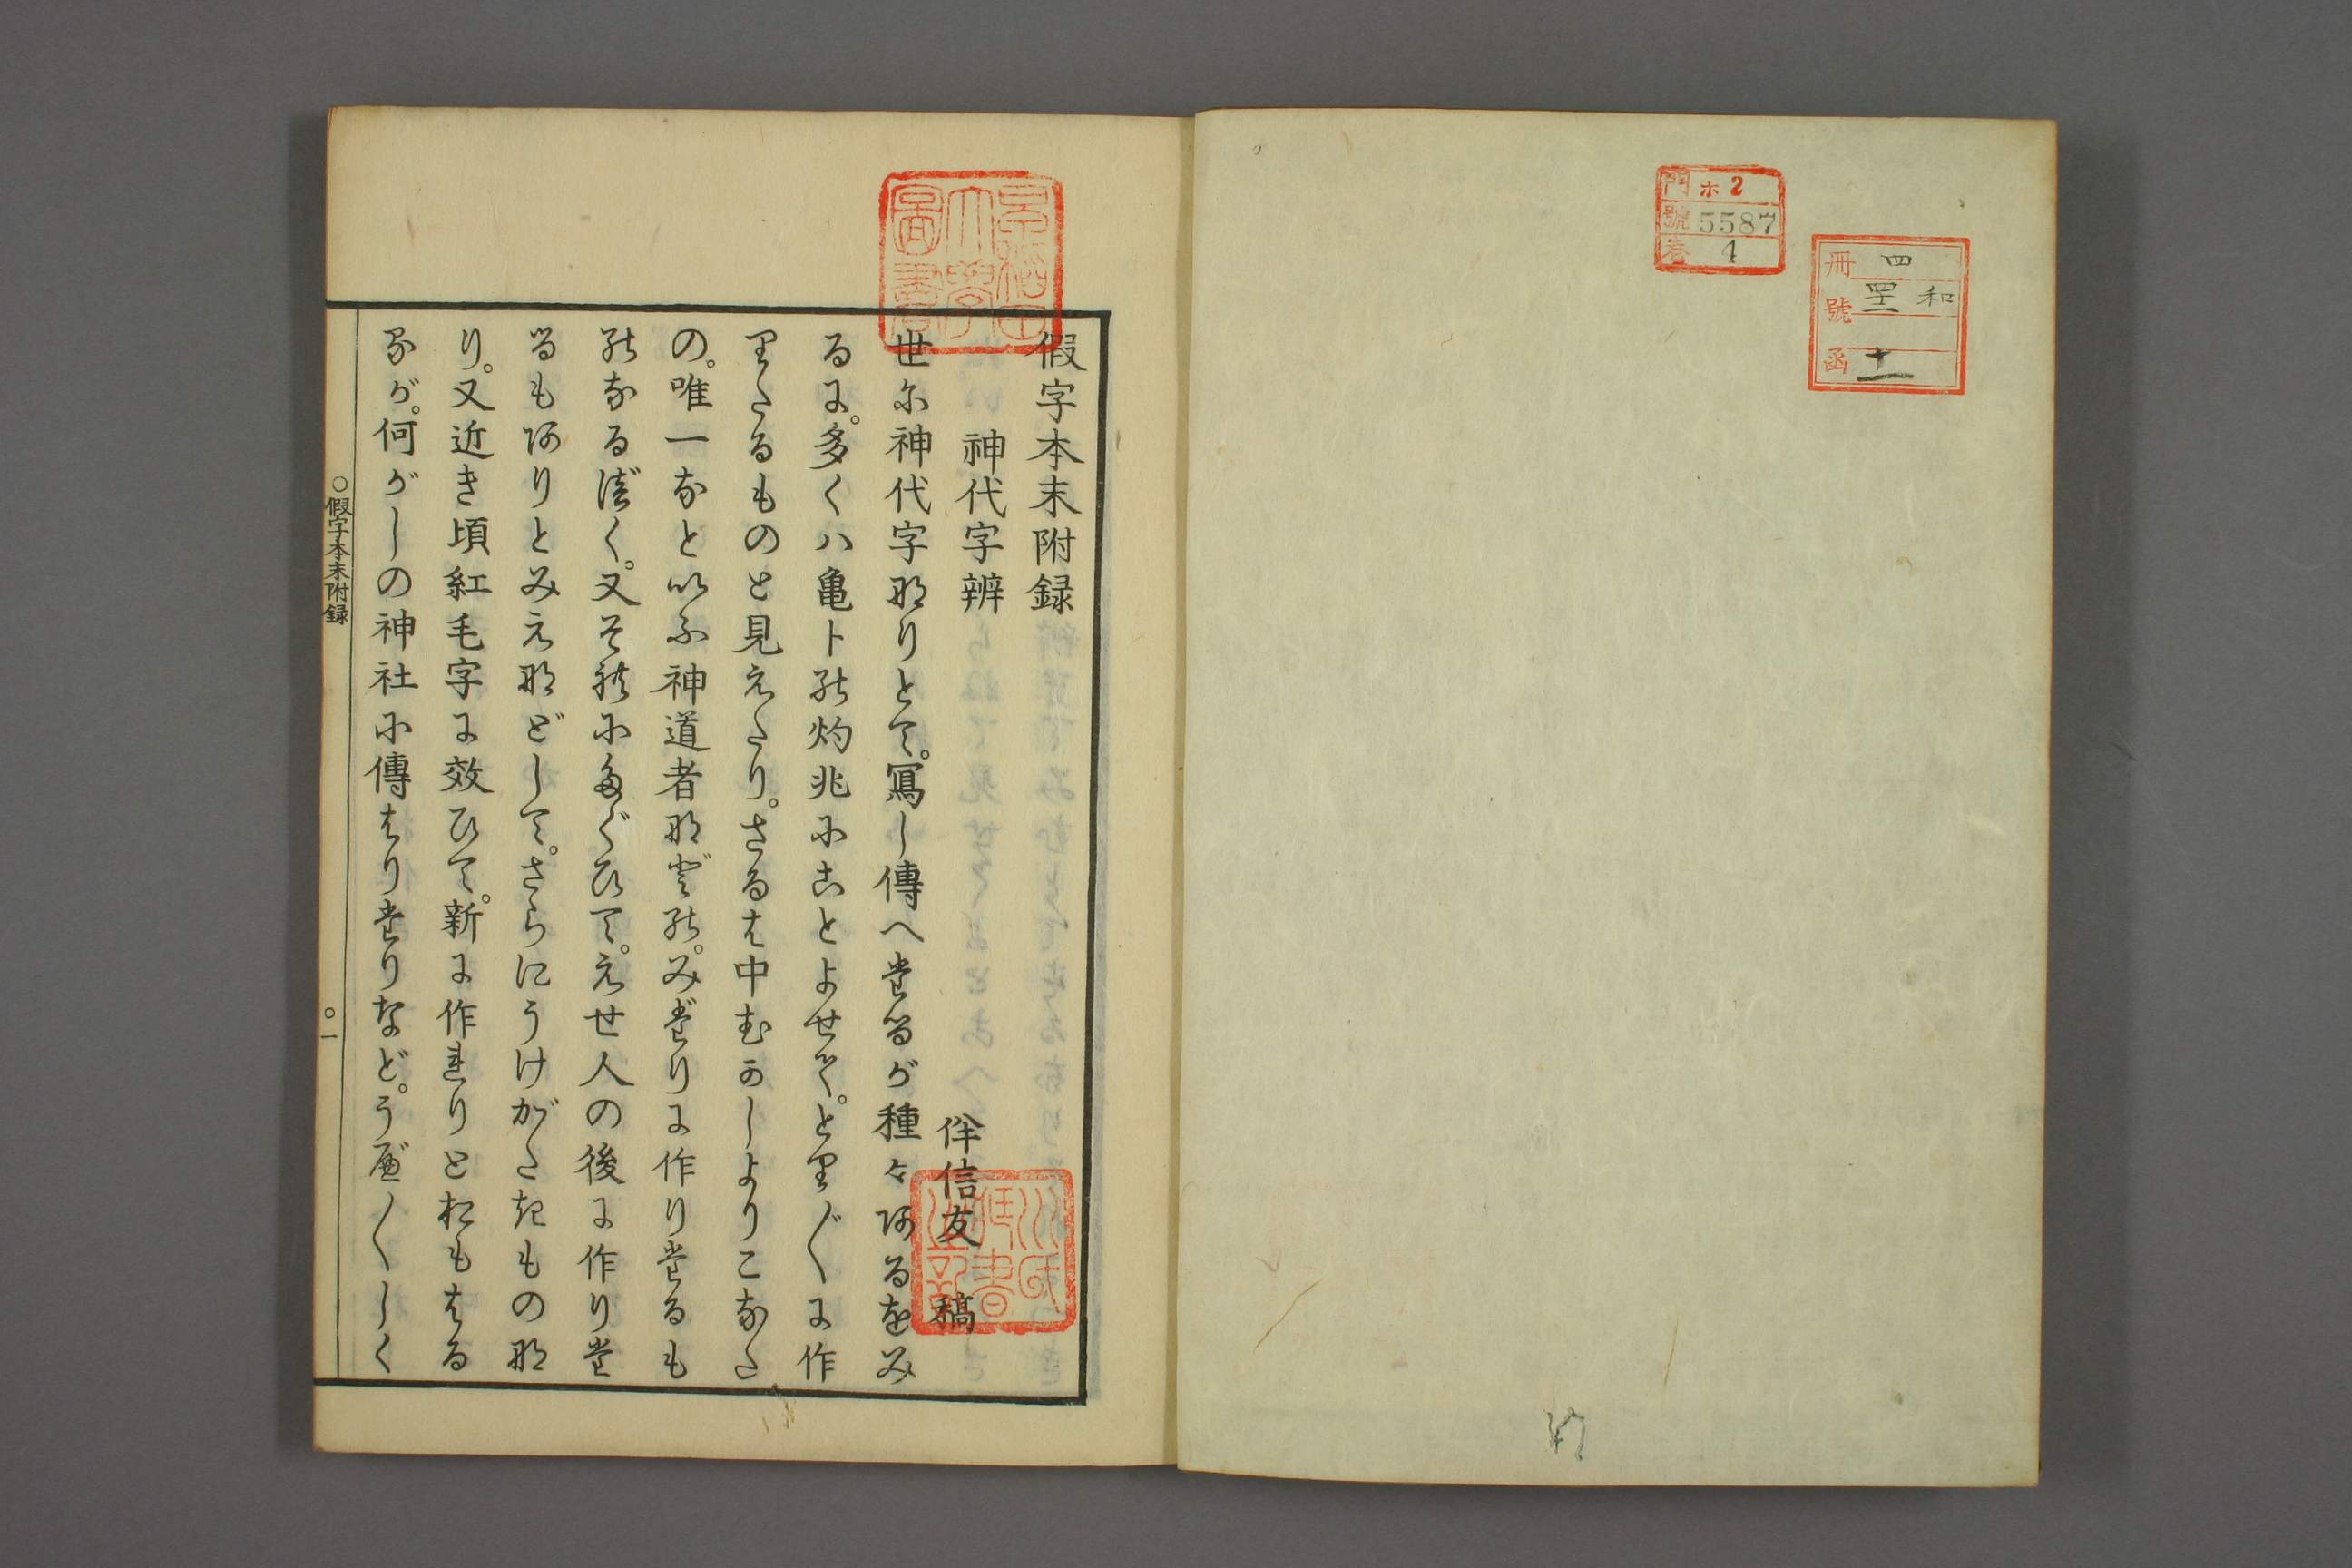 門 ホ 2
號 5587
卷 4
冊 四
函 十一
早稲田大學圖書
假字本末附録
神代字辨
伴信友 稿
世に神代字なりとて。寫し傳へたるが種々あるをみ
るに。多くハ亀卜の灼兆にことよせて。とり〴〵に作
りたるものと見えたり。さるは中むかしよりこなた
の。唯一なといふ神道者などの。みだりに作りたるも
のなるべく。又それにたぐひて。えせ人の後に作りた
るもありとみえなどして。さらにうけがたきものな
り。又近き頃紅毛字に效ひて。新に作れりとおもはる
るが。何がしの神社に傳はりたりなど。うべ〳〵しく
〇假字本末附録
〇一